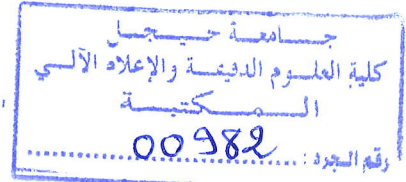 جامعة جيجل
كلية العلوم الدقيقة والإعلام الآلي
المكتبة
رقم الجرد : 00982